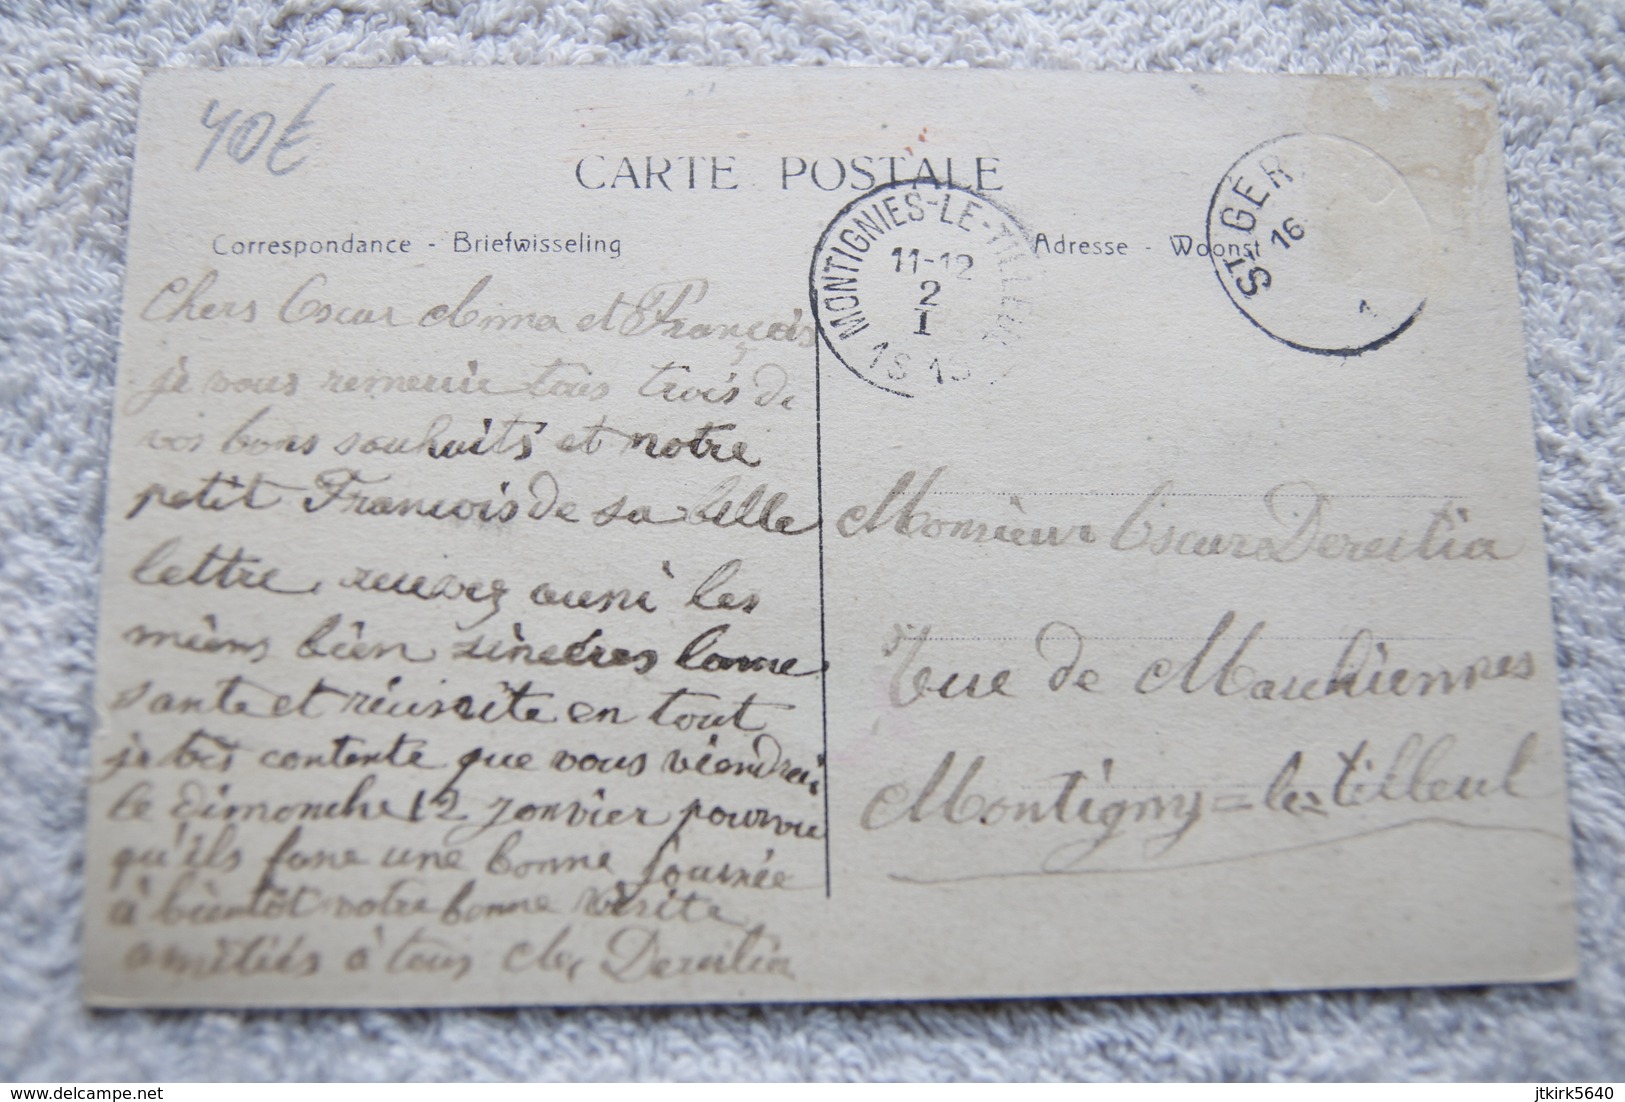 40€
CARTE POSTALE
Correspondance - Briefwisseling
Adresse - Woonst
MONTIGNIES-LE-TILLEUL
11-12
2
I
1913
ST GÉR
16
1
Chers Oscar Anna et François
je vous remercie tous trois de
vos bons souhaits et notre
petit François de sa belle
lettre recevez aussi les
miens bien sincères bonne
sante et réussite en tout
je très contente que vous viendrai
le dimonche 12 jonvier pourvu
qu'ils fane une bonne journée
à bientôt votre bonne visite
amitiés à tous
Monsieur Oscar
rue de Marchiennes
Montigny=les tilleul
delcampe.net
jtkirk5640